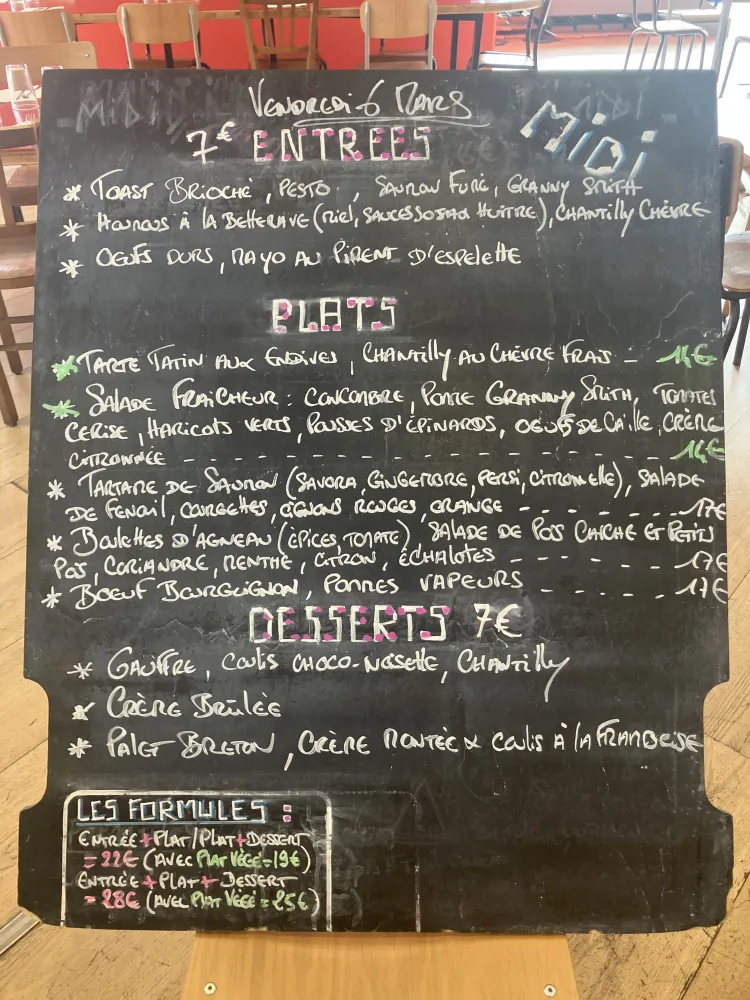 VENDREDI 6 MARS
MIDI
7€ ENTREES
* TOAST BRIOCHÉ, PESTO, SAUMON FUMÉ, GRANNY SMITH
* HOUMOUS À LA BETTERAVE (MIEL, SAUCE SOJA & HUÎTRE), CHANTILLY CHÈVRE
* OEUFS DURS, MAYO AU PIMENT D'ESPELETTE
PLATS
* TARTE TATIN AUX ENDIVES, CHANTILLY AU CHÈVRE FRAIS - 14€
* SALADE FRAÎCHEUR : CONCOMBRE, POMME GRANNY SMITH, TOMATES
CERISE, HARICOTS VERTS, POUSSES D'ÉPINARDS, OEUFS DE CAILLE, CRÈME
CITRONNÉE - - - - - - - - - - - - - - - - - - 14€
* TARTARE DE SAUMON (SAVORA, GINGEMBRE, PERSI, CITRONNELLE), SALADE
DE FENOUIL, COURGETTES, OIGNONS ROUGES, ORANGE - - - - - - 17€
* BOULETTES D'AGNEAU (ÉPICES, TOMATE), SALADE DE POIS CHICHE ET PETITS
POIS, CORIANDRE, MENTHE, CITRON, ÉCHALOTES - - - - - - 17€
* BOEUF BOURGUIGNON, POMMES VAPEURS - - - - - - 17€
DESSERTS 7€
* GAUFFRE, COULIS CHOCO-NOISETTE, CHANTILLY
* CRÈME BRÛLÉE
* PALET BRETON, CRÈME MONTÉE & COULIS À LA FRAMBOISE
LES FORMULES :
ENTRÉE+PLAT/PLAT+DESSERT
= 22€ (AVEC PLAT VÉGÉ=19€)
ENTRÉE+PLAT+DESSERT
= 28€ (AVEC PLAT VÉGÉ=25€)